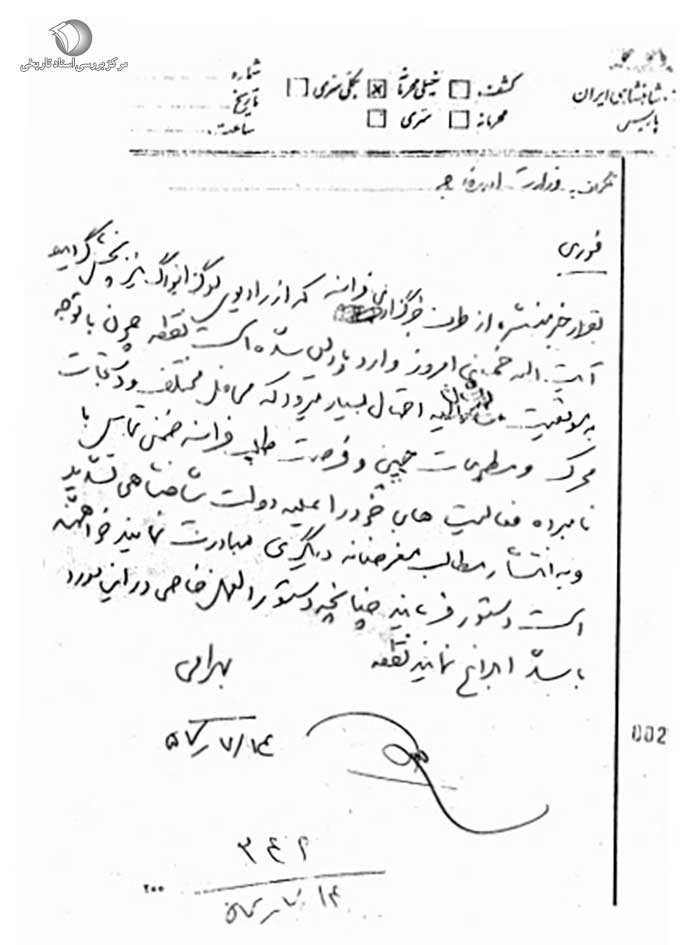 مرکز بررسی اسناد تاریخی
شاهنشاهی ایران
پاریس
کشف: خیلی محرمانه بکلی سری
محرمانه سری
شماره
تاریخ
ساعت
تلگراف به وزارت امور خارجه
فوری
بقرار خبر منتشره از طرف خبرگزاری فرانسه که از رادیوی لوگزامبورگ نیز پخش گردید
آیت اله خمینی امروز وارد پاریس شده است نقطه چون با توجه
به موقعیت احتمال بسیار میرود که محافل مختلف و دستجات
محرک و مطبوعات چپی و فرصت طلب فرانسه ضمن تماس با
نامبرده فعالیت های خود را علیه دولت شاهنشاهی تشدید
و به انتشار مطالب مغرضانه دیگری مبادرت نمایند خواهشمند
است دستور فرمایند چنانچه دستورالعمل خاصی در این مورد
باشد ابلاغ نمایند نقطه
بهرامی
۵۷/۷/۱۴
002
۳۴۶
۲۰۰